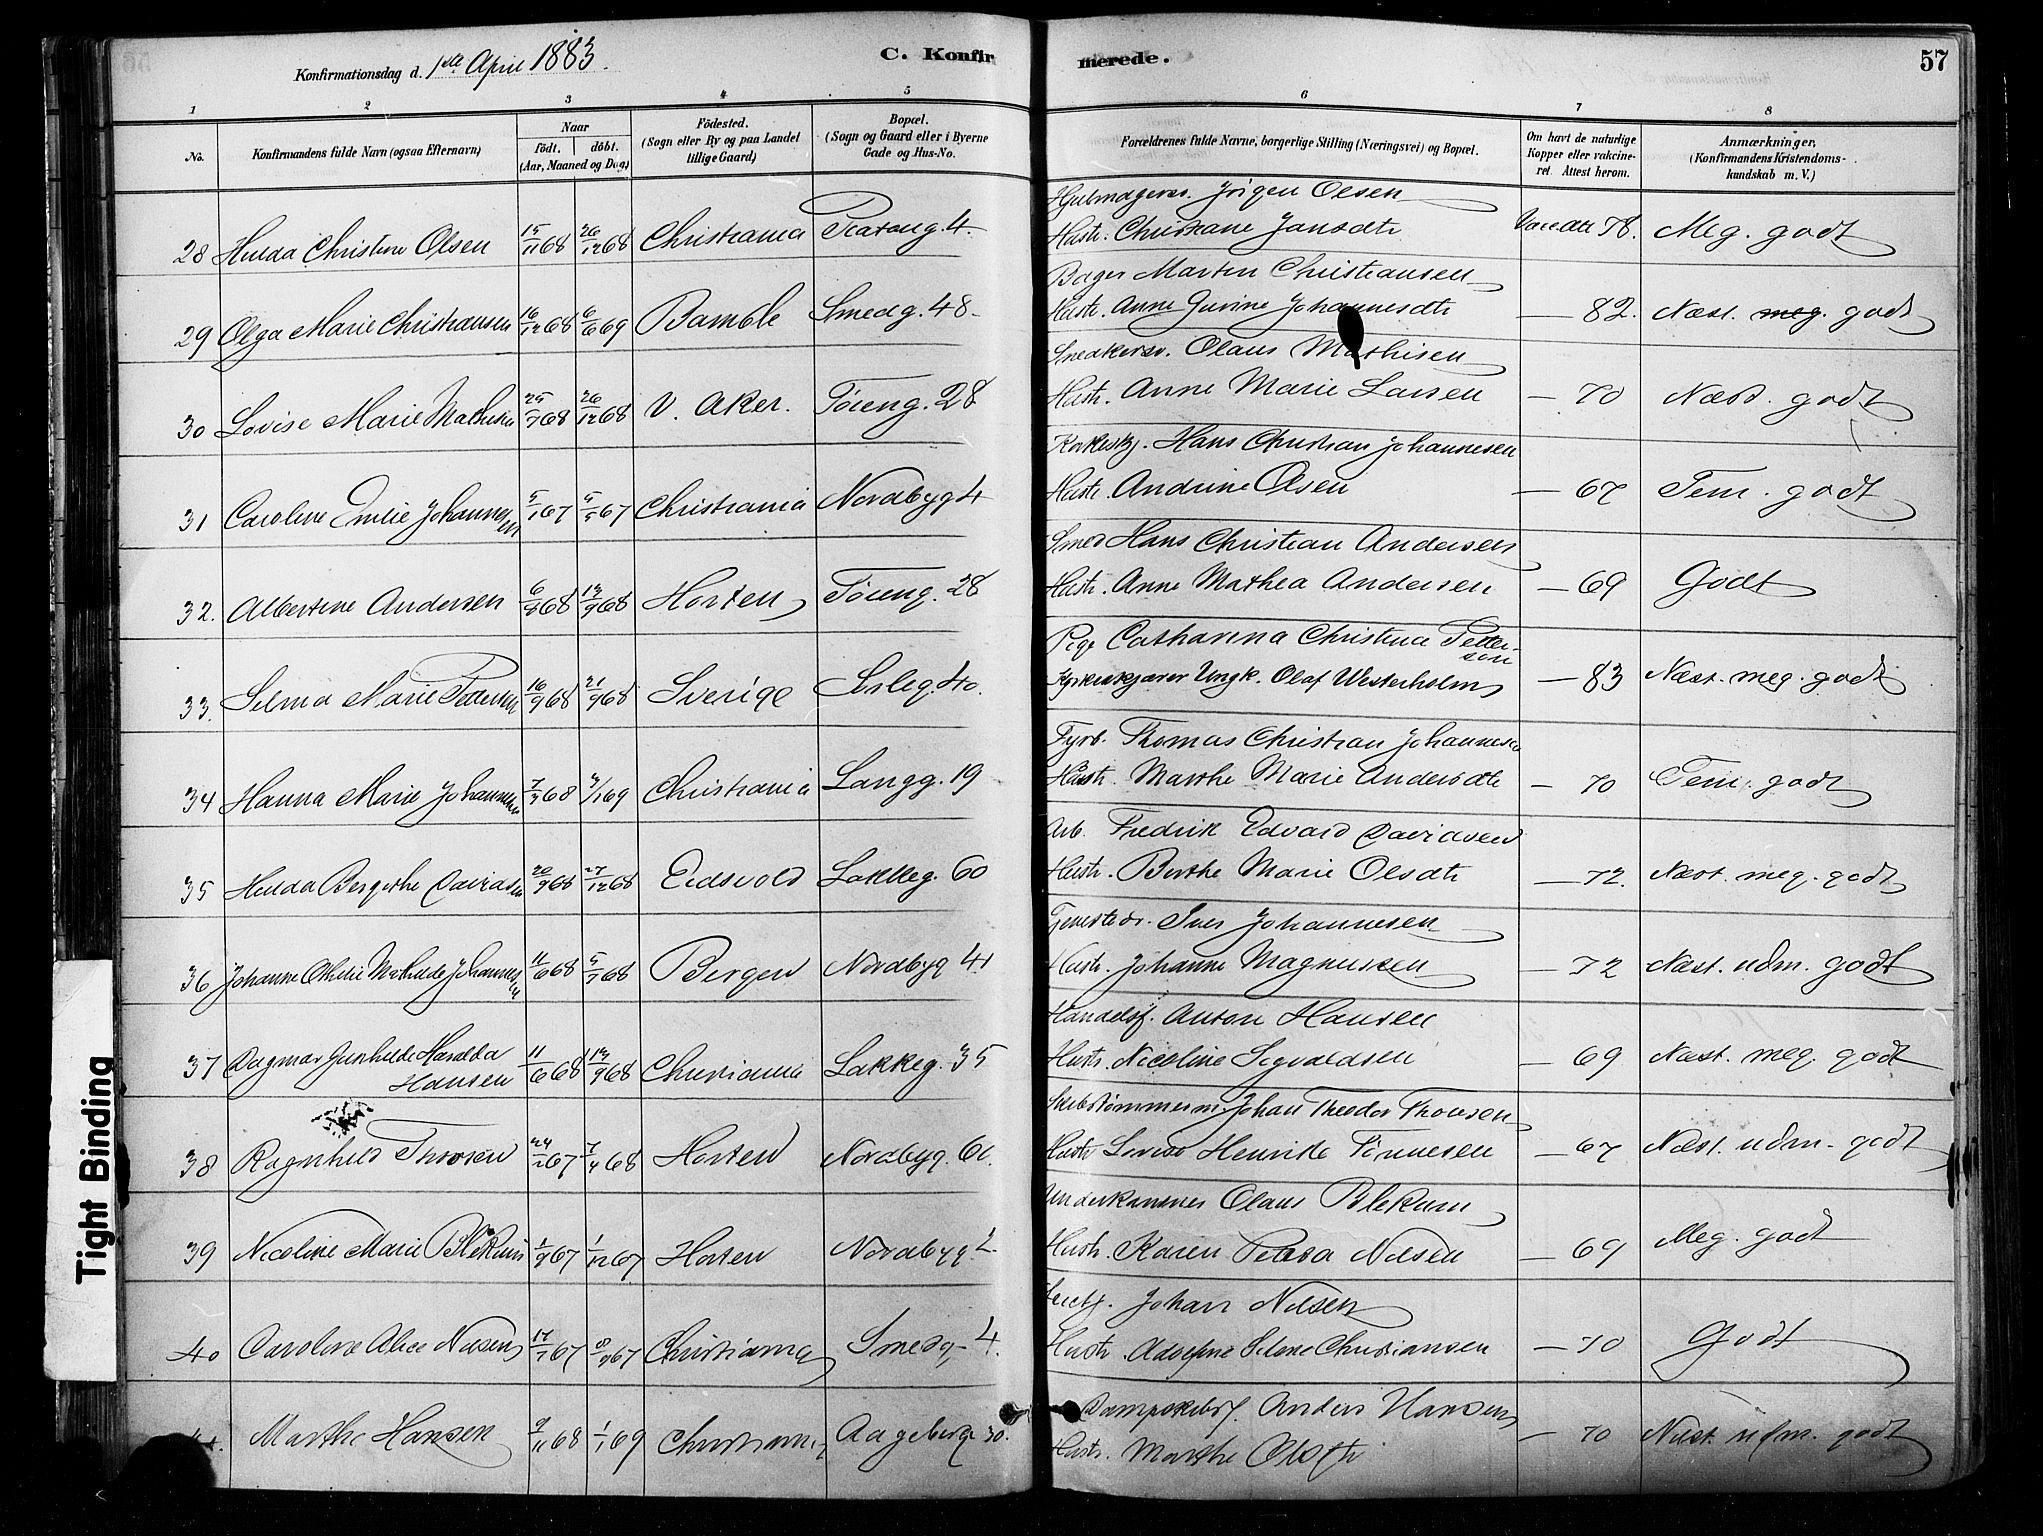 Konfirmationsdag d. 1ste April 1883.
C. Konfirmerede.
57
1 2 3 4 5 6 7 8
No.
Konfirmandens fulde Navn (ogsaa Efternavn)
Naar
født. døbt.
(Aar, Maaned og Dag)
Fødested.
(Sogn eller By og paa Landet
tillige Gaard)
Bopæl.
(Sogn og Gaard eller i Byerne
Gade og Hus-No.
Forældrenes fulde Navne, borgerlige Stilling (Næringsvei) og Bopæl.
Om havt de naturlige
Kopper eller vakcine-
ret. Attest herom.
Anmærkninger,
(Konfirmandens Kristendoms-
kundskab m. V.)
Hjulmagersv. Jørgen Olsen
28 Hulda Christine Olsen 15/11 68 26/12 68 Christiania Platoug. 4. Hustr. Christiane Jansdtr Vaccdtt 78. Meg. godt
Bager Martin Christiansen
29 Olga Marie Christiansen 16/12 68 6/6 69 Bamble Smedg. 48. Hustr. Anne Gurine Johannesdtr — 82. Næst. meg. godt
Snedkersv. Olaus Mathisen
30 Lovise Marie Mathisen 25/7 68 26/12 68 V. Aker. Tøieng. 28 Hustr. Anne Marie Larsen — 70 Næst. godt
Korkeskj. Hans Christian Johannesen
31 Caroline Emilie Johannesen 5/1 67 5/5 67 Christiania Nordbyg 4 Hustr. Andrine Olsen — 67 Tem. godt
Smed Hans Christian Andersen
32. Albertine Andersen 6/8 68 13/9 68 Horten Tøieng. 28 Hustr. Anne Mathea Andersen — 69 Godt
Pige Catharina Christina Petter-
son
33. Selma Marie Pettersen 16/9 68 21/9 68 Sverige Sørleg. 40. Ungk. Olaf Westerholm — 83 Næst. meg. godt
Fyrb. Thomas Christian Johannesen
34 Hanna Marie Johannesen 7/7 68 3/1 69 Christiania Langg. 19 Hustr. Marthe Marie Andersdtr — 70 Tem. godt
Arb. Fredrik Edvard Davidsen
35 Hulda Bergithe Davidsen 20/9 68 27/12 68 Eidsvold Lakkeg. 60 Hustr. Berthe Marie Olsdtr — 72. Næst. meg. godt
Iver Johannesen
36 Johanne Othilie Mathilde Johannesen 11/6 68 5/7 68 Bergen Nordbyg 41 Hustr. Johanne Magnussen — 72 Næst. udm. godt
Handelsf. Anton Hansen
37 Dagmar Gunhilde Haralda
Hansen 11/6 68 13/9 68 Christiania Lakkeg. 35 Hustr. Nicoline Sigvaldsen — 69 Næst. meg. godt
Skibstømmerm. Johan Theodor Thorsen
38 Ragnhild Thorsen 24/12 67 7/4 68 Horten Nordbyg. 60. Hustr Lovise Henrikke Tønnesen — 67 Næst. udm. godt
Underkanoner Olaus Blekum
39 Nicoline Marie Blekum 1/9 67 1/12 67 Horten Nordbyg. 2. Hustr. Karen Petra Nilsen — 69 Meg. godt
Johan Nilsen
40 Caroline Alice Nilsen 17/7 67 8/9 67 Christiania Smedg. 4. Hustr. Adolfine Selene Christiansen — 70 Godt
Dampskibsf. Anders Hansen
41. Marthe Hansen 9/11 68 1/1 69 Christiania Aagebergv 30. Hustr. Marthe Olsdtr — 70 Næst. udm. godt
Tight Binding